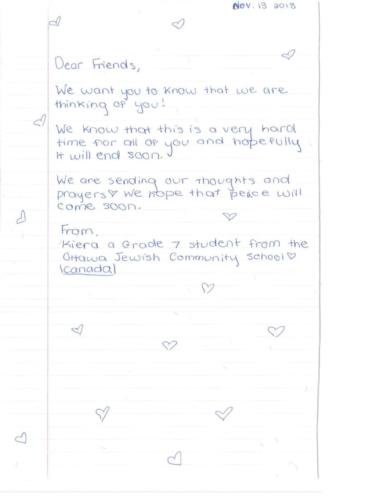 Nov. 13 2018
Dear Friends,
We want you to know that we are
thinking of you!
We know that this is a very hard
time for all of you and hopefully
it will end soon.
We are sending our thoughts and
prayers♡ We hope that peace will
come soon.
From,
Kiera a Grade 7 student from the
Ottawa Jewish Community School♡
(Canada)